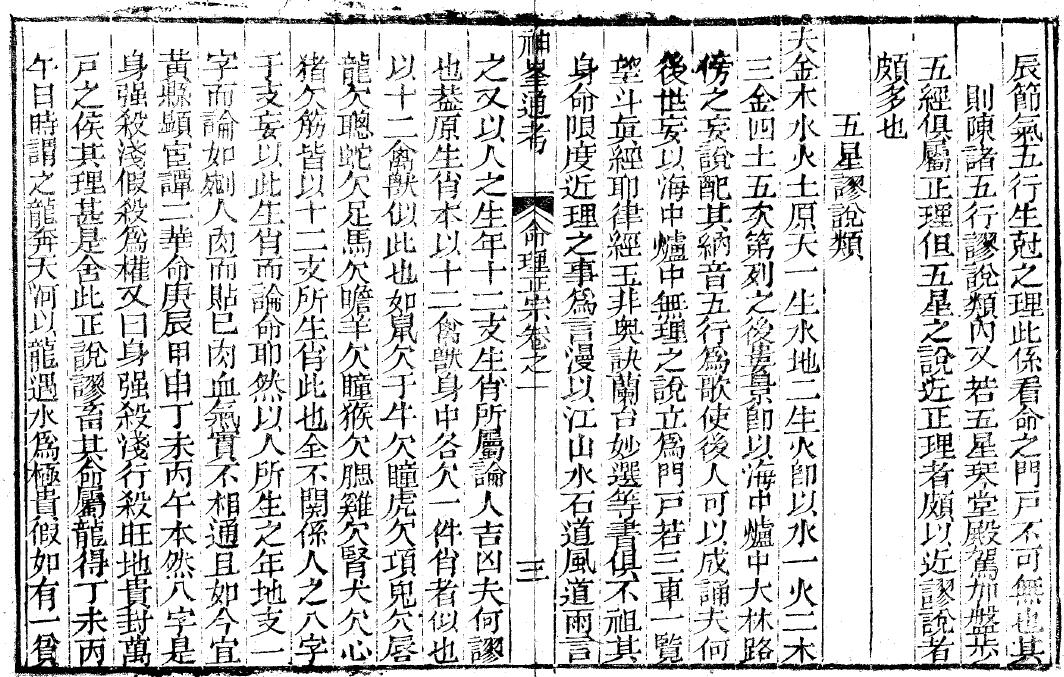 辰節氣五行生尅之理此係看命之門戸不可無也其
則陳諸五行謬說類內又若五星琴堂殿駕加盤步
五經俱屬正理但五星之說近正理者頗以近謬說者
頗多也
五星謬說類
夫金木水火土原天一生水地二生火卽以水一火二木
三金四土五次第列之後婁景卽以海中爐中大林路
傍之妄說配其納音五行爲歌使後人可以成誦夫何
後世妄以海中爐中無理之說立爲門戸若三車一覽
望斗眞經耶律經玉非奥訣蘭台妙選等書俱不祖其
身命限度近理之事爲言漫以江山水石道風道雨言
神峯通考 命理正宗卷之一 三
之又以人之生年十二支生肖所屬論人吉凶夫何謬
也葢原生肖本以十二禽獸身中各欠一件肖者似也
以十二禽獸似此也如鼠欠于牛欠瞳虎欠項兎欠唇
龍欠聰蛇欠足馬欠瞻羊欠瞳猴欠腮雞欠腎犬欠心
猪欠筋皆以十二支所生肖此也全不関係人之八字
于支妄以此生肖而論命耶然以人所生之年地支一
字而論如剜人肉而貼巳肉血氣實不相通且如今宜
黃縣顯宦譚二華命庚辰甲申丁未丙午本然八字是
身强殺淺假殺爲權又曰身强殺淺行殺旺地貴封萬
戸之侯其理甚是舍此正說謬畜其命屬龍得丁未丙
午日時謂之龍奔天河以龍遇水爲極貴假如有一貧